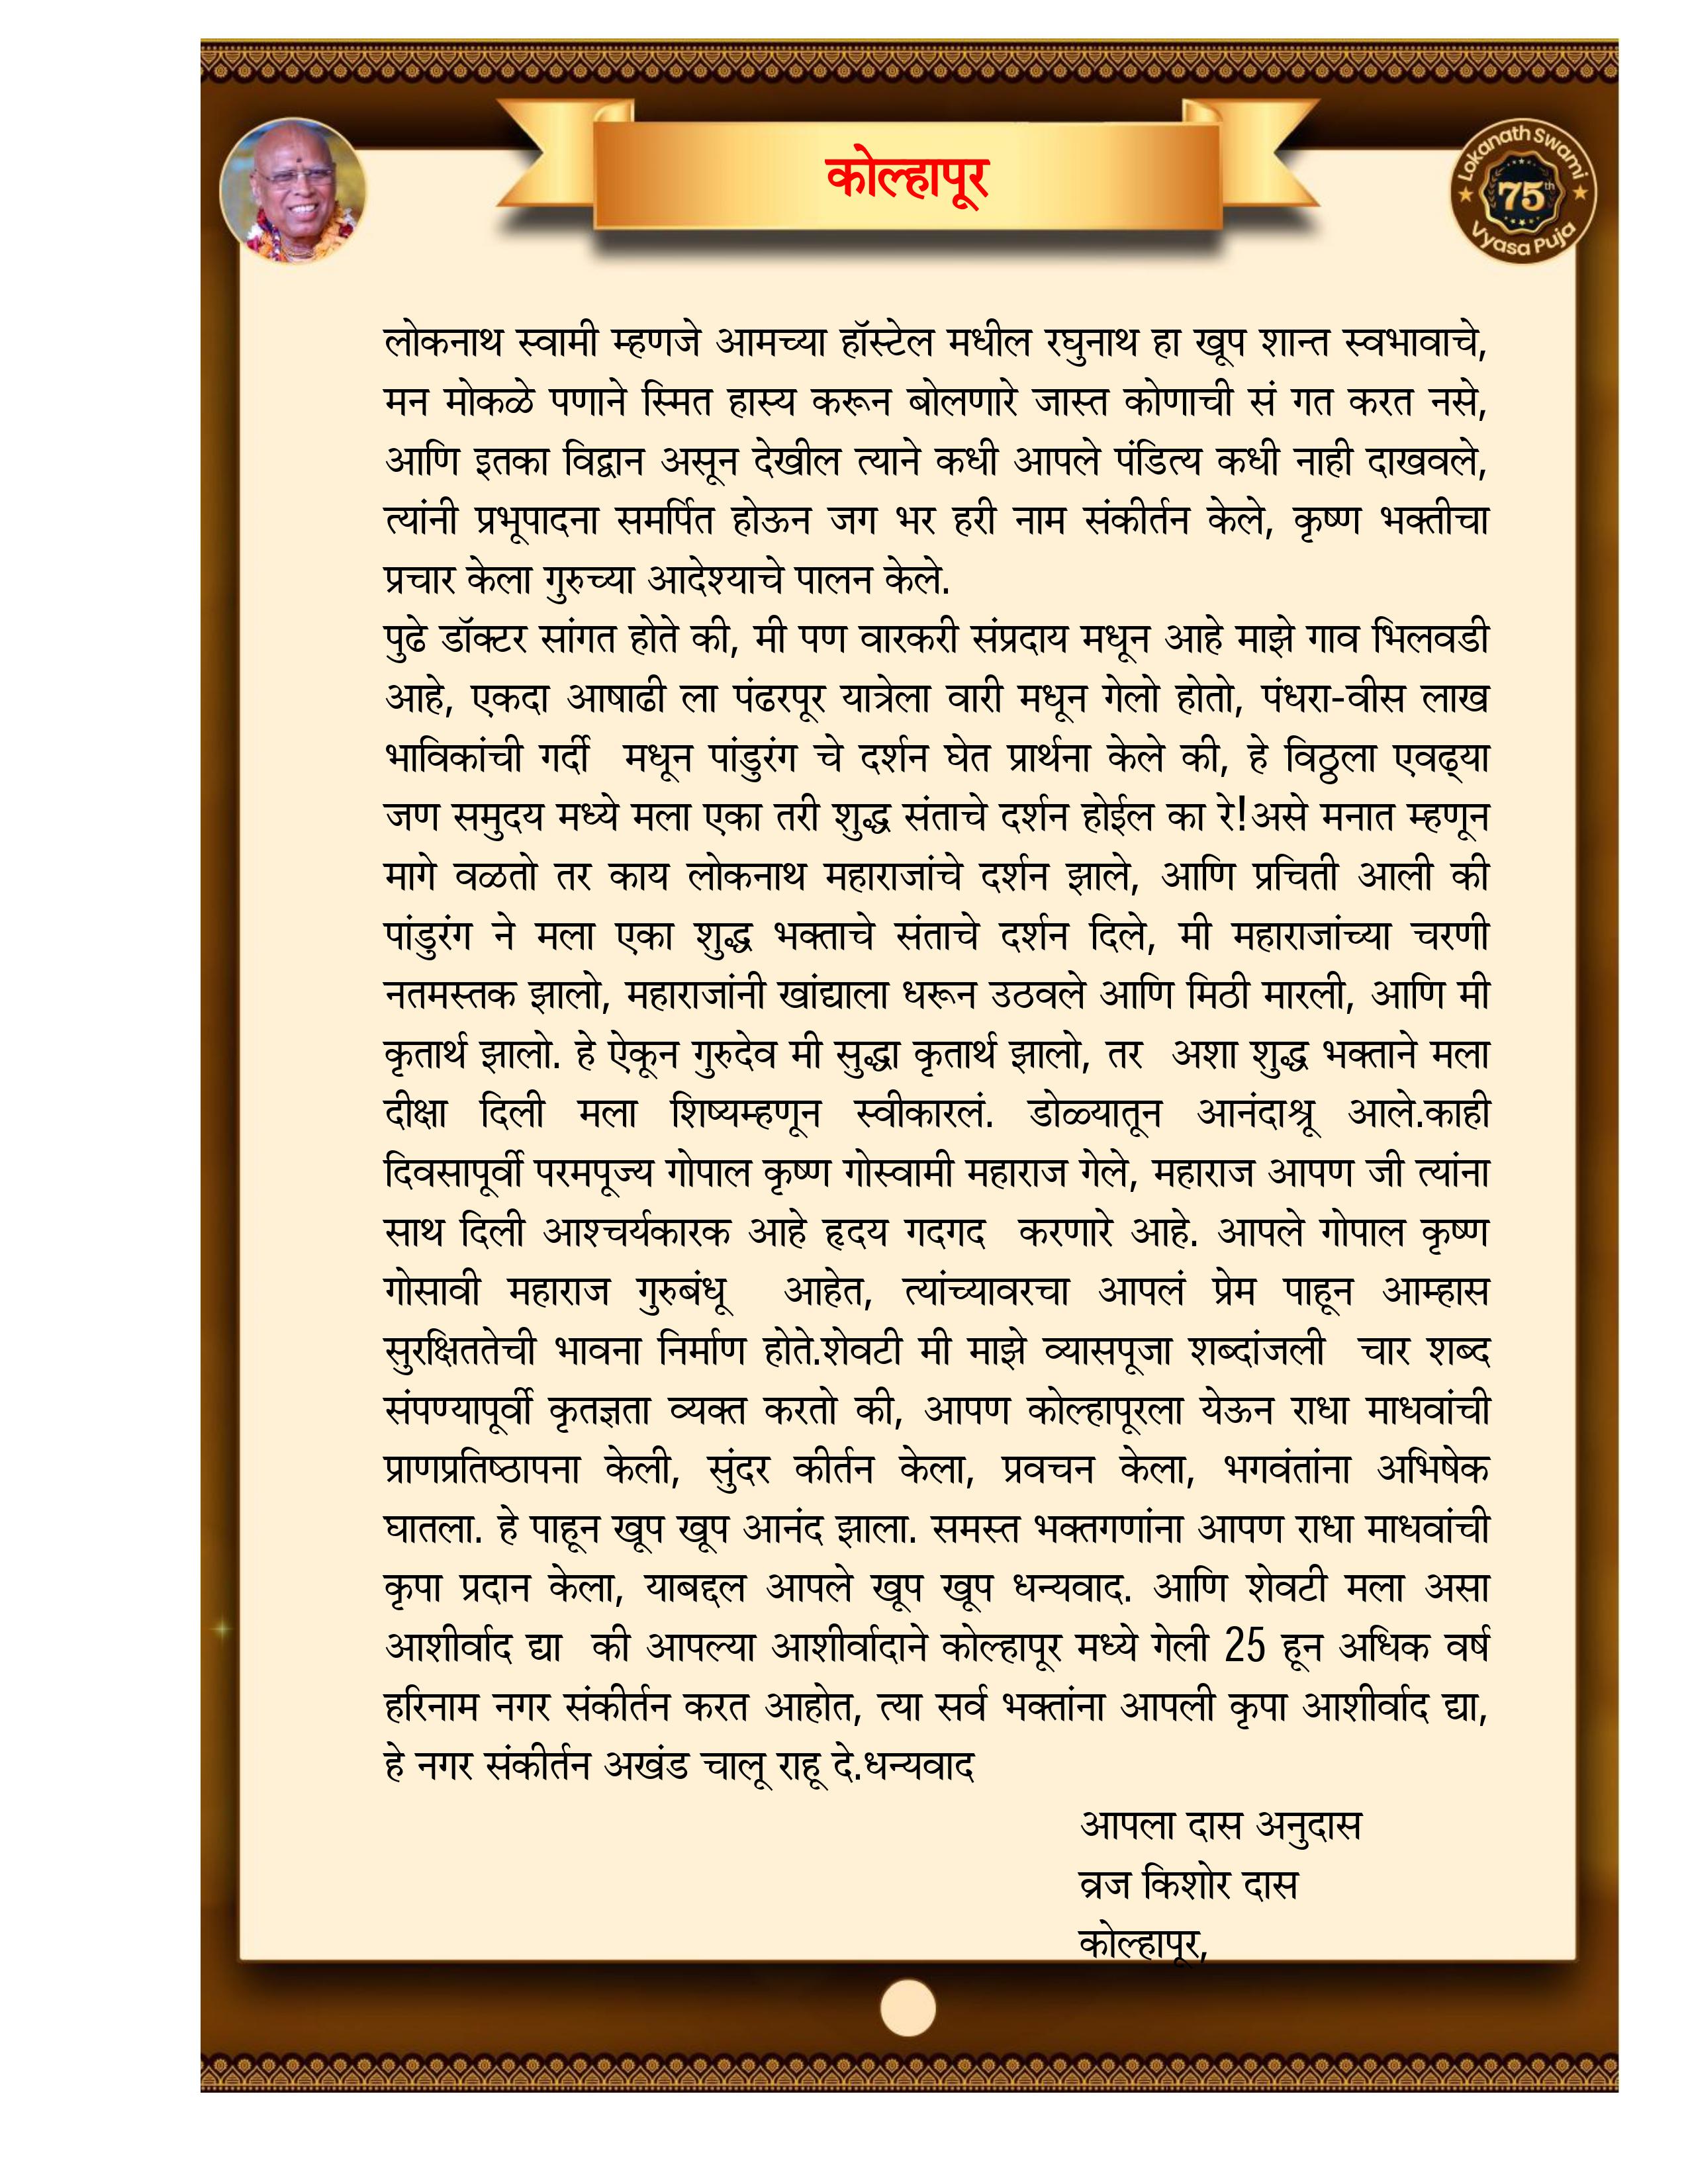 कोल्हापूर
Lokanath Swami
75th
Vyasa Puja
लोकनाथ स्वामी म्हणजे आमच्या हॉस्टेल मधील रघुनाथ हा खूप शान्त स्वभावाचे,
मन मोकळे पणाने स्मित हास्य करून बोलणारे जास्त कोणाची सं गत करत नसे,
आणि इतका विद्वान असून देखील त्याने कधी आपले पंडित्य कधी नाही दाखवले,
त्यांनी प्रभूपादना समर्पित होऊन जग भर हरी नाम संकीर्तन केले, कृष्ण भक्तीचा
प्रचार केला गुरुच्या आदेश्याचे पालन केले.
पुढे डॉक्टर सांगत होते की, मी पण वारकरी संप्रदाय मधून आहे माझे गाव भिलवडी
आहे, एकदा आषाढी ला पंढरपूर यात्रेला वारी मधून गेलो होतो, पंधरा-वीस लाख
भाविकांची गर्दी  मधून पांडुरंग चे दर्शन घेत प्रार्थना केले की, हे विठ्ठला एवढ्या
जण समुदय मध्ये मला एका तरी शुद्ध संताचे दर्शन होईल का रे!असे मनात म्हणून
मागे वळतो तर काय लोकनाथ महाराजांचे दर्शन झाले, आणि प्रचिती आली की
पांडुरंग ने मला एका शुद्ध भक्ताचे संताचे दर्शन दिले, मी महाराजांच्या चरणी
नतमस्तक झालो, महाराजांनी खांद्याला धरून उठवले आणि मिठी मारली, आणि मी
कृतार्थ झालो. हे ऐकून गुरुदेव मी सुद्धा कृतार्थ झालो, तर  अशा शुद्ध भक्ताने मला
दीक्षा दिली मला शिष्यम्हणून स्वीकारलं. डोळ्यातून आनंदाश्रू आले.काही
दिवसापूर्वी परमपूज्य गोपाल कृष्ण गोस्वामी महाराज गेले, महाराज आपण जी त्यांना
साथ दिली आश्चर्यकारक आहे हृदय गदगद  करणारे आहे. आपले गोपाल कृष्ण
गोसावी महाराज गुरुबंधू  आहेत, त्यांच्यावरचा आपलं प्रेम पाहून आम्हास
सुरक्षिततेची भावना निर्माण होते.शेवटी मी माझे व्यासपूजा शब्दांजली  चार शब्द
संपण्यापूर्वी कृतज्ञता व्यक्त करतो की, आपण कोल्हापूरला येऊन राधा माधवांची
प्राणप्रतिष्ठापना केली, सुंदर कीर्तन केला, प्रवचन केला, भगवंतांना अभिषेक
घातला. हे पाहून खूप खूप आनंद झाला. समस्त भक्तगणांना आपण राधा माधवांची
कृपा प्रदान केला, याबद्दल आपले खूप खूप धन्यवाद. आणि शेवटी मला असा
आशीर्वाद द्या  की आपल्या आशीर्वादाने कोल्हापूर मध्ये गेली 25 हून अधिक वर्ष
हरिनाम नगर संकीर्तन करत आहोत, त्या सर्व भक्तांना आपली कृपा आशीर्वाद द्या,
हे नगर संकीर्तन अखंड चालू राहू दे.धन्यवाद
आपला दास अनुदास
व्रज किशोर दास
कोल्हापूर,